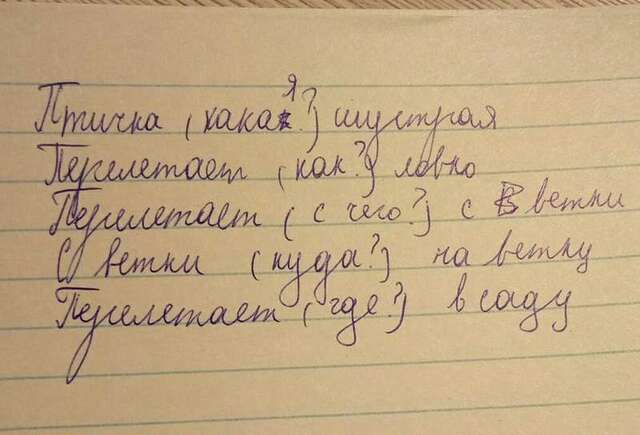 Птичка (какая?) шустрая
Перелетает (как?) ловко
Перелетает (с чего?) с ветки
С ветки (куда?) на ветку
Перелетает (где?) в саду